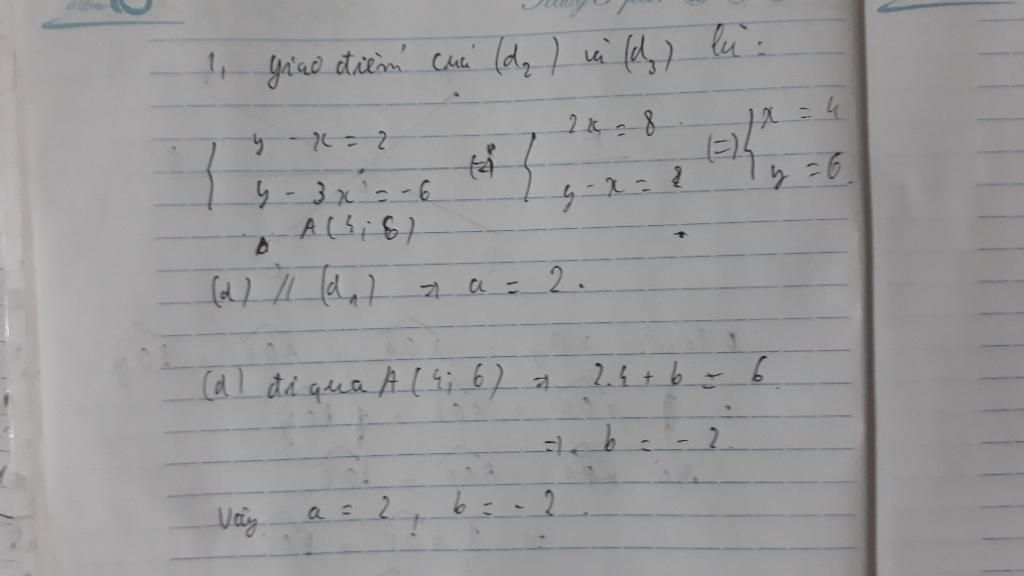 1, giao điểm của (d₂) và (d₃) là:
{ y - x = 2 (=) { 2x = 8 (=) { x = 4
y - 3x = -6 y - x = 2 y = 6
A(4; 6)
(d) // (d₁) => a = 2.
(d) đi qua A(4; 6) => 2.4 + b = 6
=> b = -2
Vậy a = 2, b = -2.